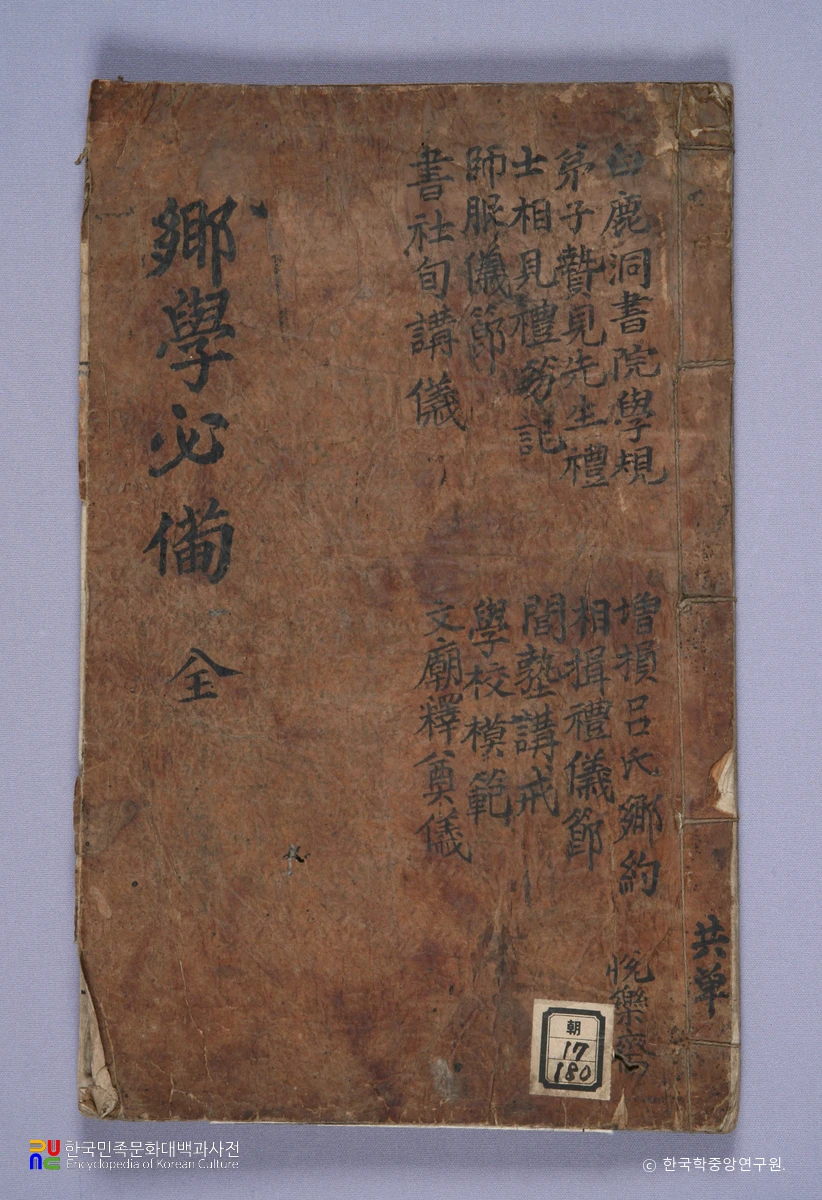 白鹿洞書院學規
弟子贄見先生禮
士相見禮劄記
師服儀節
書社旬講儀
增損呂氏鄉約
相揖禮儀節
閭塾講戒
學校模範
文廟釋奠儀
悅樂齋
共單
鄉學必備 全
朝
17
180
한국민족문화대백과사전
Encyclopedia of Korean Culture
ⓒ 한국학중앙연구원.